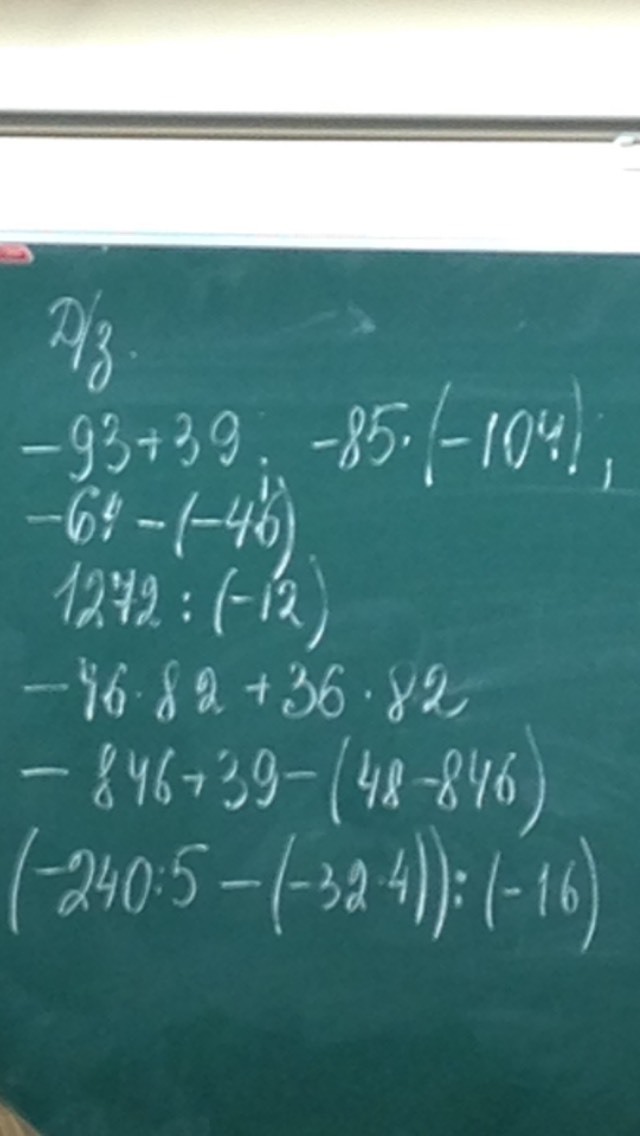 Д/з.
-93+39; -85·(-104);
-61-(-46)
1272:(-12)
-46·82+36·82
-846+39-(48-846)
(-240:5-(-32·4)):(-16)